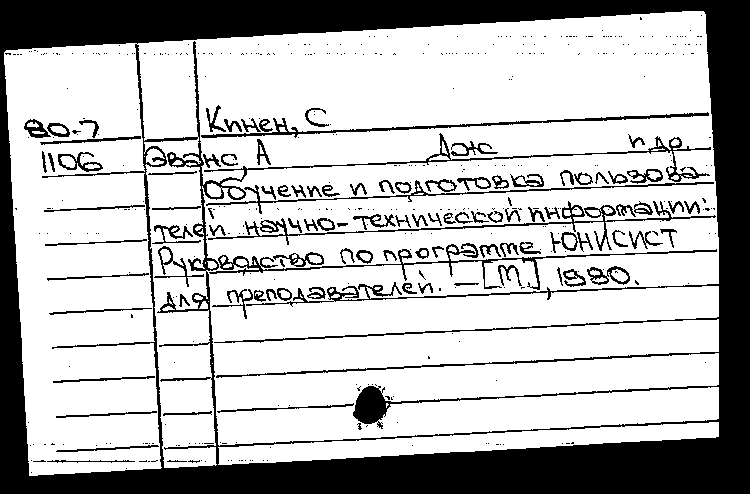 80-7 Кинен, С
1106 Эванс, А Дж и др.
Обучение и подготовка пользова-
телей научно-технической информации:
Руководство по программе ЮНИСИСТ
для преподавателей. - [М.], 1980.